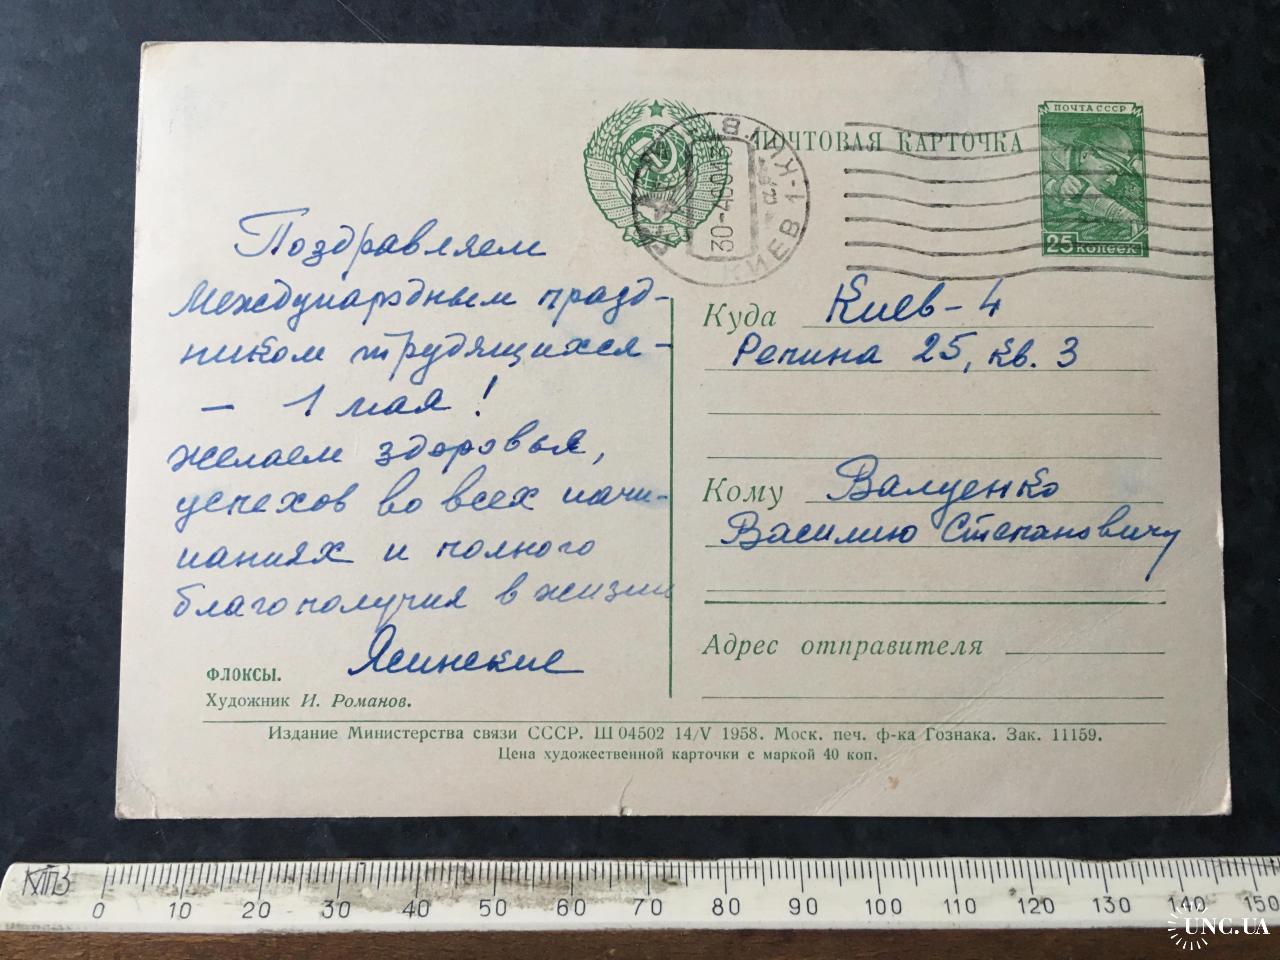 ПОЧТОВАЯ КАРТОЧКА
ПОЧТА СССР
25 копеек
КИЕВ 1
30-4
Поздравляем
Международным празд-
ником трудящихся -
- 1 мая!
желаем здоровья,
успехов во всех начи-
наниях и полного
благополучия в жизни
Ясинские
Куда Киев-4
Репина 25, кв. 3
Кому Валуенко
Василию Степановичу
Адрес отправителя
ФЛОКСЫ.
Художник И. Романов.
Издание Министерства связи СССР. Ш 04502 14/V 1958. Моск. печ. ф-ка Гознака. Зак. 11159.
Цена художественной карточки с маркой 40 коп.
0 10 20 30 40 50 60 70 80 90 100 110 120 130 140 150
UNC.UA